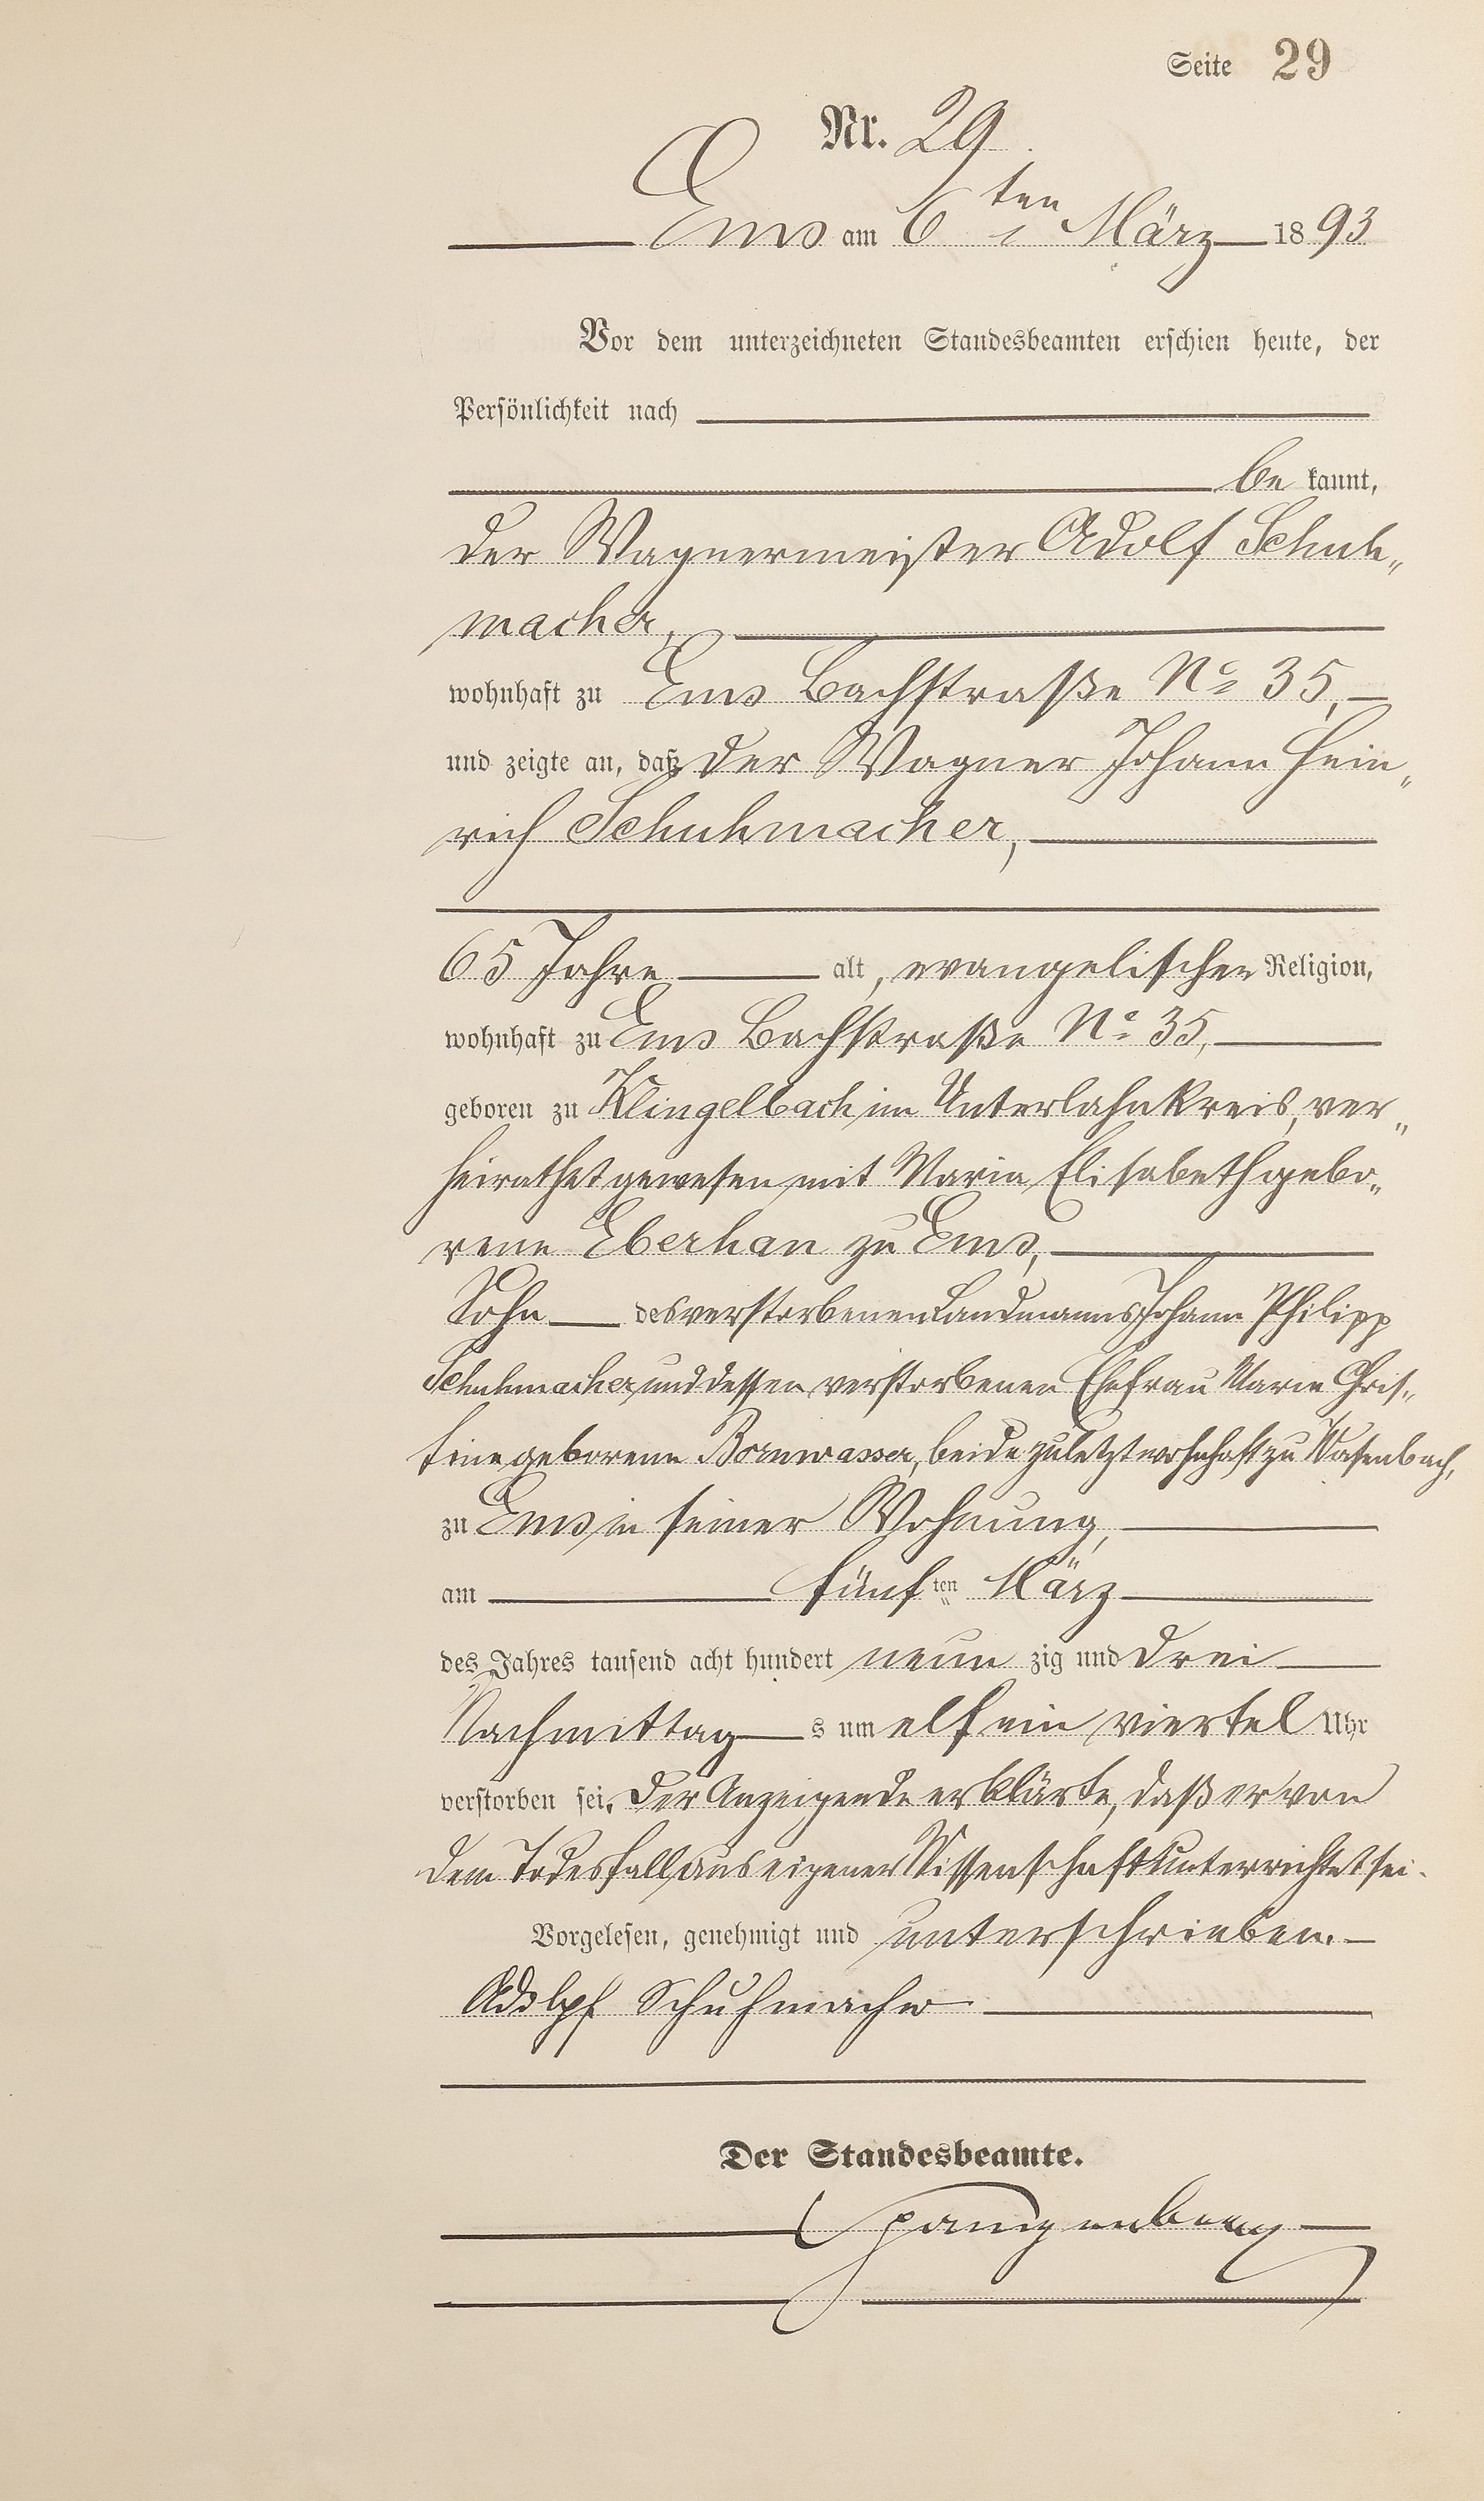 Seite 29
Nr. 29.
Ems am 6ten März 1893
Vor dem unterzeichneten Standesbeamten erschien heute, der
Persönlichkeit nach
bekannt,
der Wagnermeister Adolf Schuh„
macher,
wohnhaft zu Ems Bachstraße No 35,
und zeigte an, daß der Wagner Johann Hein„
rich Schuhmacher,
65 Jahre alt, evangelischer Religion,
wohnhaft zu Ems Bachstraße No 35,
geboren zu Klingelbach im Unterlahnkreis, ver„
heirathet gewesen mit Maria Elisabeth gebo„
rene Eberhan zu Ems,
Sohn des verstorbenen Landmanns Johann Philipp
Schuhmacher und dessen verstorbenen Ehefrau Marie Chris„
tine geborene Bornwasser, beide zuletzt wohnhaft zu Wasenbach,
zu Ems in seiner Wohnung,
am fünften März
des Jahres tausend acht hundert neunzig und drei
Nachmittags um elf ein viertel Uhr
verstorben sei. Der Anzeigende erklärte, daß er von
dem Todesfall aus eigener Wissenschaft unterrichtet sei.
Vorgelesen, genehmigt und unterschrieben.
Adolpf Schuhmacher
Der Standesbeamte.
Spangenberg